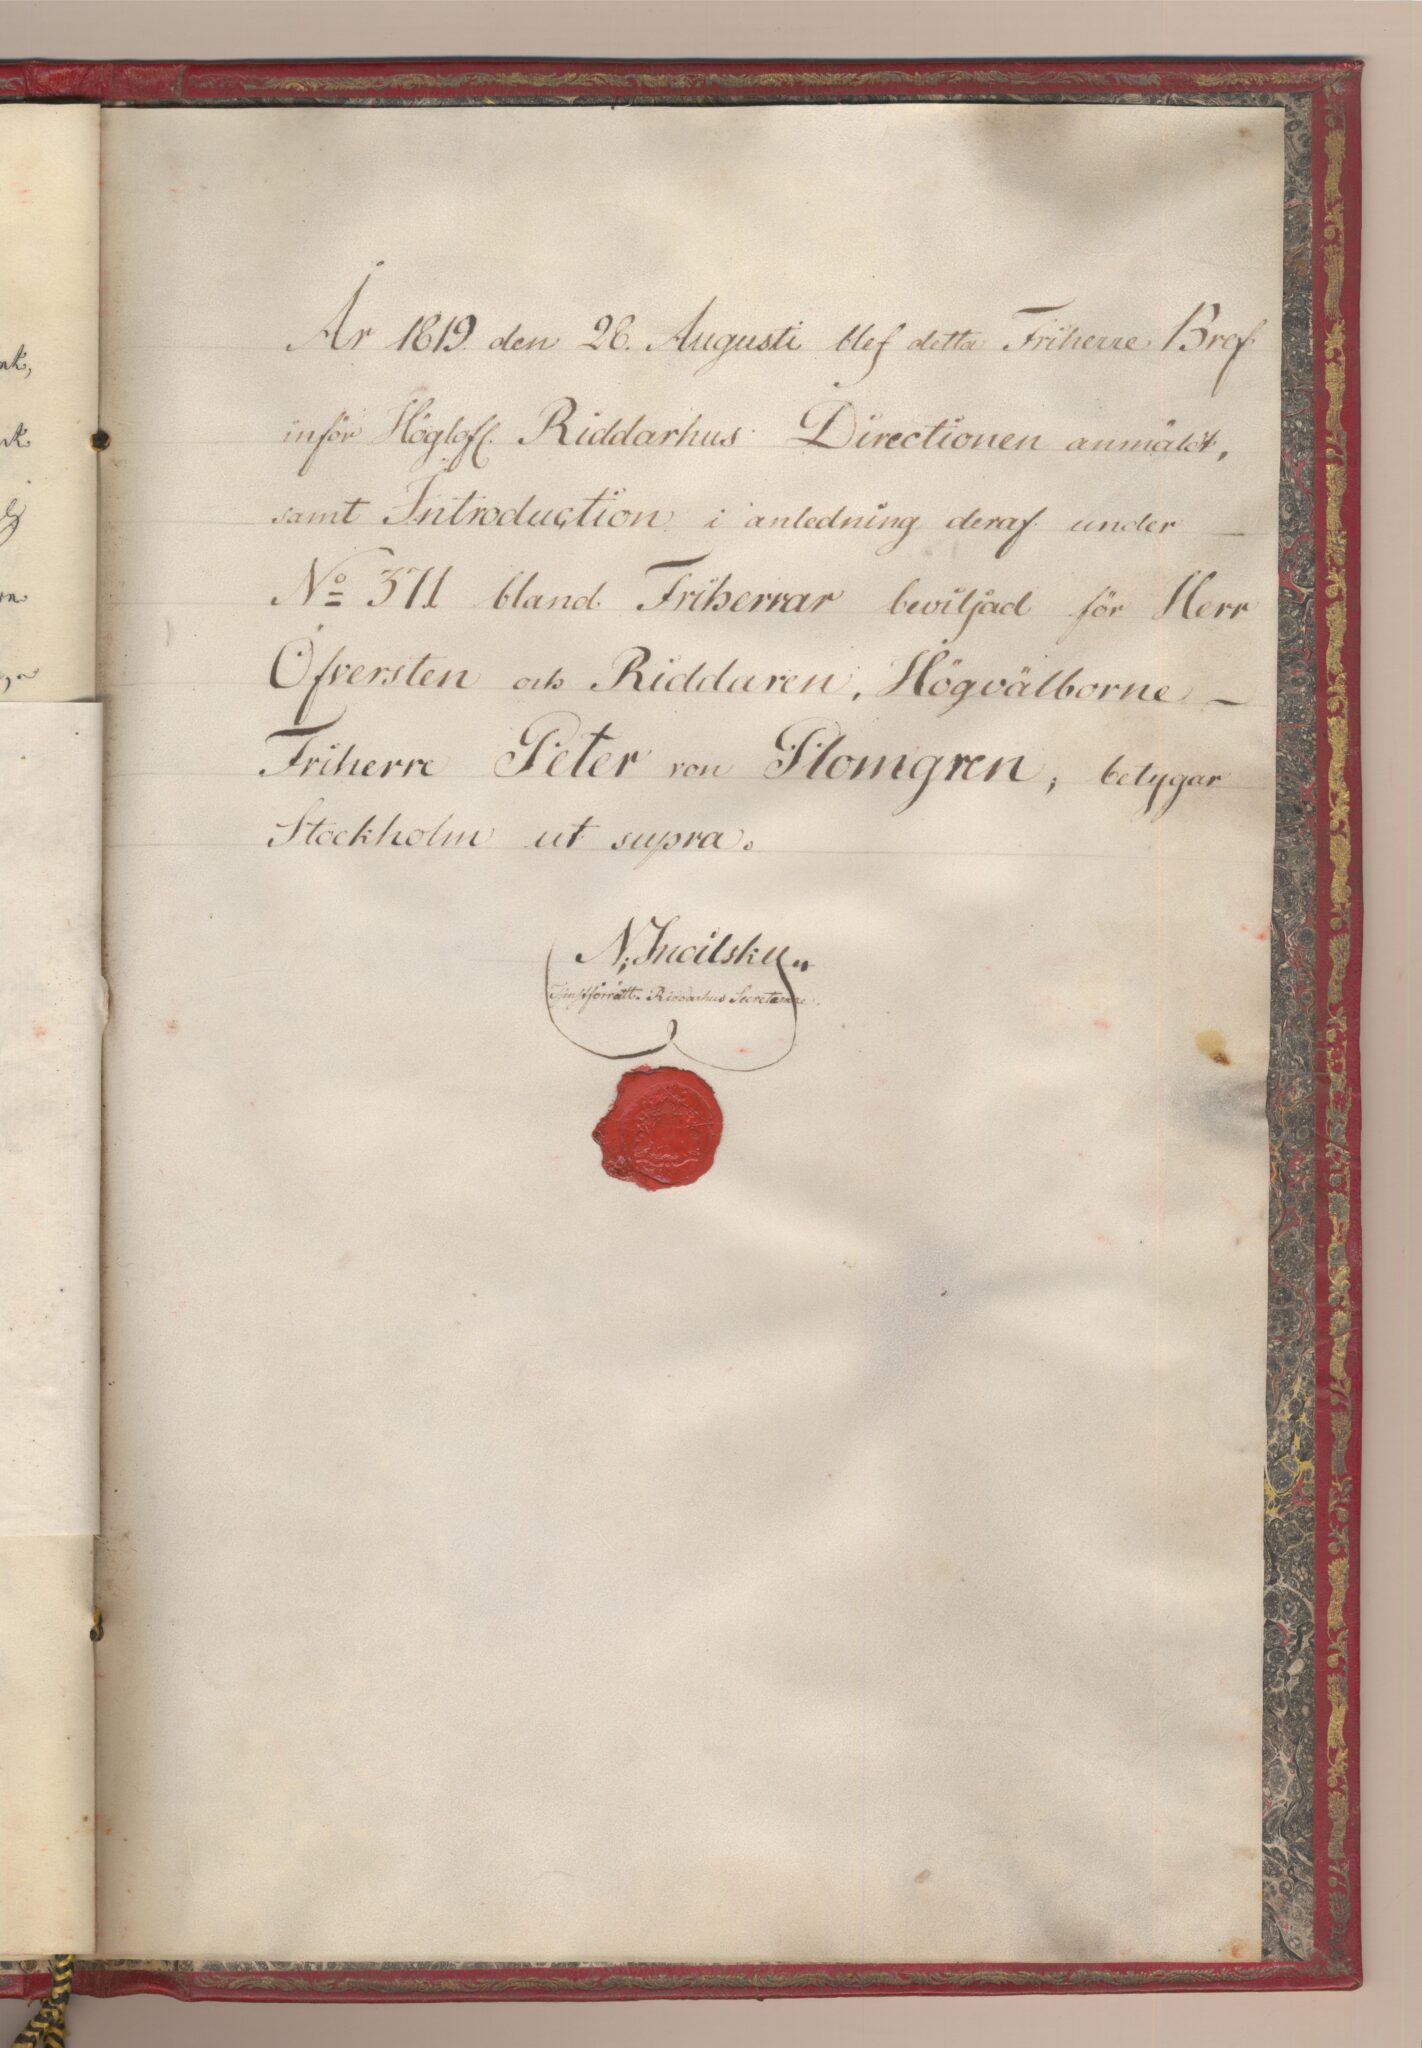 År 1819 den 28. Augusti blef detta Friherre Bref
inför Höglofl. Riddarhus Directionen anmäldt,
samt Introduction i anledning deraf under
No 371 bland Friherrar beviljad för Herr
Öfversten och Riddaren, Högvälborne
Friherre Peter von Plomgren, betygar
Stockholm ut supra.
N. Snoilsky
Tjenstförrätt. Riddarhus Secreterare.